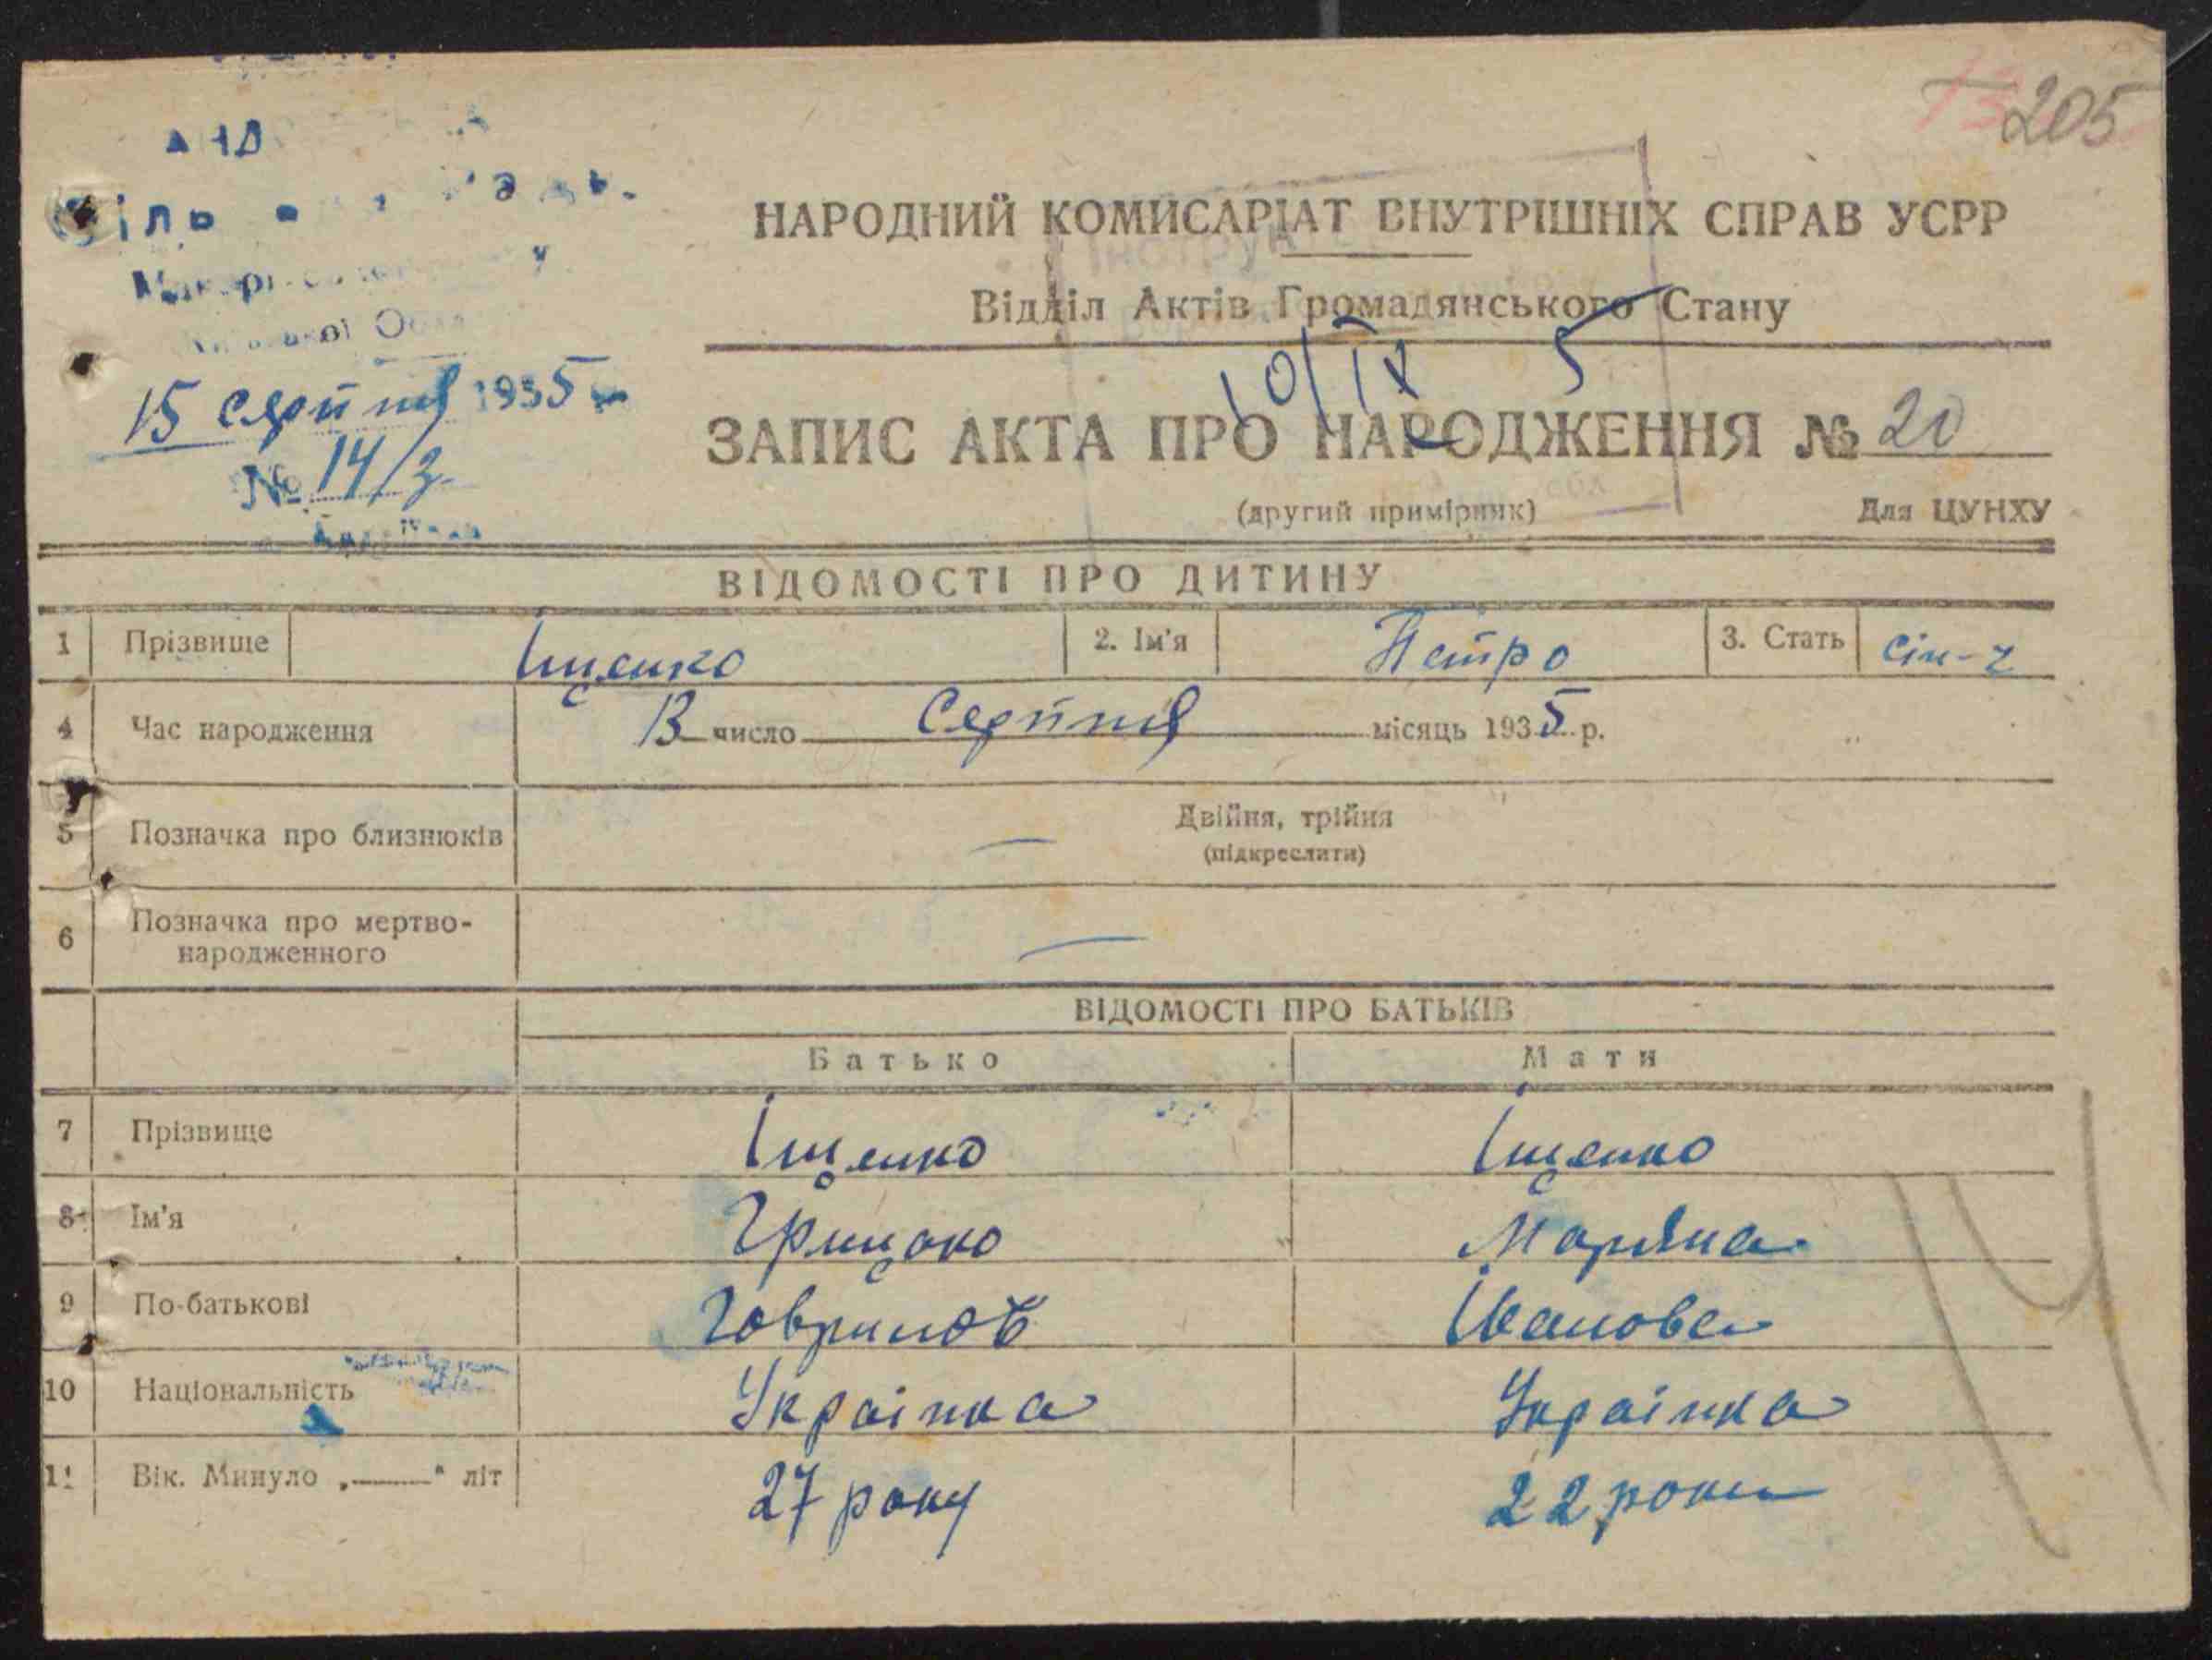 205
15 серпня 1935
№ 14/3
НАРОДНИЙ КОМИСАРІАТ ВНУТРІШНІХ СПРАВ УСРР
Відділ Актів Громадянського Стану
10/IX 5
ЗАПИС АКТА ПРО НАРОДЖЕННЯ № 20
(другий примірник) Для ЦУНХУ
ВІДОМОСТІ ПРО ДИТИНУ
1 Прізвище Іщенко 2. Ім'я Петро 3. Стать
4 Час народження 13 число Серпня місяць 1935 р.
5 Позначка про близнюків — Двійня, трійня
(підкреслити)
6 Позначка про мертво-
народженного —
ВІДОМОСТІ ПРО БАТЬКІВ
Батько Мати
7 Прізвище Іщенко Іщенко
8 Ім'я Грицько Марьяна
9 По-батькові Гаврилов Іванова
10 Національність Українка Українка
11 Вік. Минуло „——" літ 27 року 22 роки